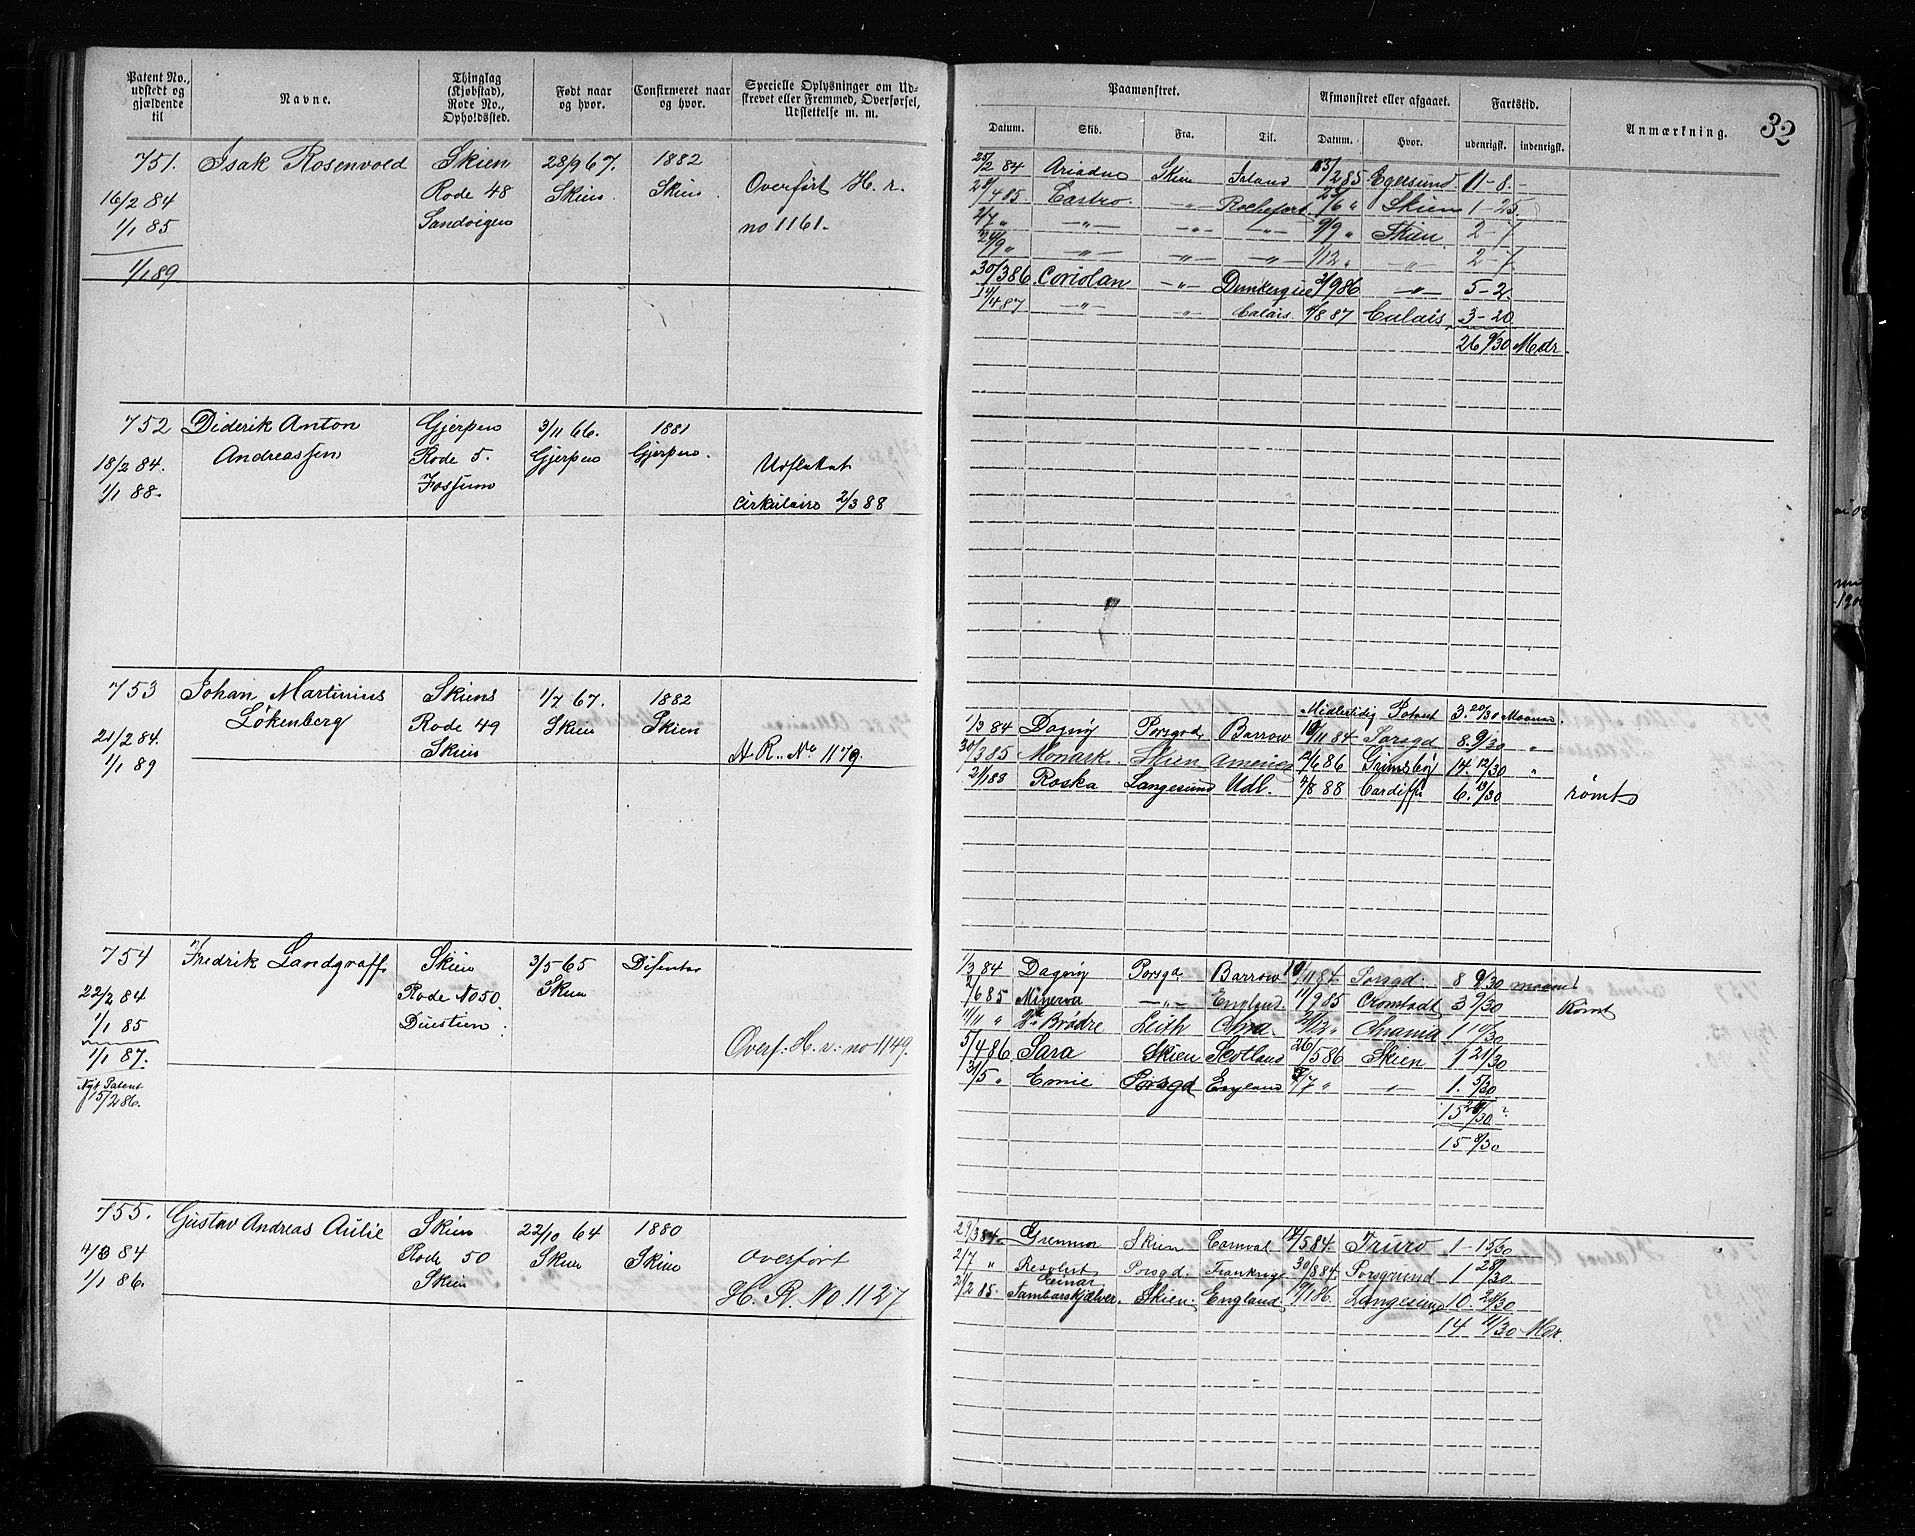 Patent No., udstedt og gjældende til
Navne.
Thinglag (Kjøbstad), Rode No., Opholdssted.
Født naar og hvor.
Confirmeret naar og hvor.
Specielle Oplysninger om Udskrevet eller Fremmed, Overførsel, Udslettelse m. m.
Paamønstret.
Afmønstret eller afgaaet.
Fartstid.
Anmærkning.
32
Datum. Skib. Fra. Til. Datum. Hvor. udenrigsk. indenrigsk.
751. Isak Rosenvold Skien 28/9 67. 1882
16/2 84 Rode 48 Skien Skien Overført H. r.
1/1 85 Sandvigen no 1161.
1/1 89
25/2 84 Ariadne Skien Island /2 85 Egersund. 11-8. -
/4 85 Castro. -"- Rochefort /6 " Skien 1-25.
2/7 " -"- -"- -"- 9/9 " Skien 2-7
/9 " -"- -"- -"- 1/12 " -"- 2-7.
30/3 86 Coriolan -"- Dunkerque 2/9 86 -"- 5-2.
14/4 87 -"- -"- Calais. /8 87 Calais. 3-20
26 9/30 Mdr.
752 Diderik Anton Gjerpen 3/11 66. 1881
18/2 84. Andreassen Rode 5. Gjerpen Gjerpen.
1/1 88. Fossum
Udslettet
Cirkulaire 2/3 88
753 Johan Martinius Skiens 1/7 67. 1882
Lökenberg Rode 49 Skien Skien
21/2 84. Skien
1/1 89
H. R. No 1179.
Midlertidig Patent 3. 20/30 Maaned.
1/3 84 Dagny Porsgrd Barrow 10/11 84 Porsgd 8. 9/30 "
30/3 85 Monark Skien America 12/6 86 Grimsby 14. 12/30 "
2/1 88 Roska Langesund Udl. /8 88 Cardiff 6. 13/30 rømt
754 Fredrik Landgraff Skien 3/5 65 Disenter
22/2 84 Rode No 50 Skien
1/1 85 Duestien.
1/1 87.
Nyt Patent
15/2 86.
Overf: H. r: no 1149.
1/3 84 Dagny Porsgd. Barrow 10/11 84 Porsgd. 8 9/30 maaned
2/6 85 Minerva -"- England 11/9 85 Cronstadt 3 9/30 Rømt
/11 " Brödre Leith /12 " 1 10/30
5/4 86 Sara Skien Skotland 26/5 86 Skien 1 21/30
31/5 " Ernie Porsgd England /7 " -"- 1. 5/30
15 /30 ?
15 8/30
755. Gustav Andreas Aulie Skien 22/10 64 1880
4/3 84 Rode 50 Skien Skien
1/1 86. Skien
Overført
H. R. No 1127
29/3 84. Gremmor Skien Cornval 14/5 84. Truro 1-15/30
2/7 " Resolut Porsgd. Frankrige 30/8 84. Porsgrund 1 28/30
Einar
2/2 85. Tambarskjælver. Skien. England. /1 86. Langesund 10. 28/30
14 11/30 Mdr.